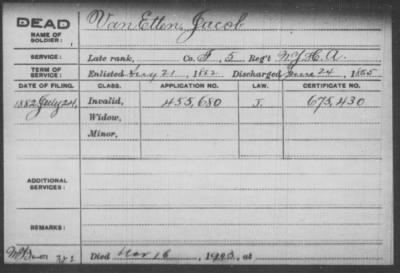 DEAD Van Etten, Jacob
NAME OF SOLDIER:
SERVICE: Late rank, Co. F, 5 Reg't N.Y.H.A.
TERM OF SERVICE: Enlisted Aug 21, 1862 Discharged June 24, 1865
DATE OF FILING. CLASS. APPLICATION NO. LAW. CERTIFICATE NO.
1882 July 24, Invalid, 455,680 J. 675,430
Widow,
Minor,
ADDITIONAL SERVICES:
REMARKS:
Died Mar 16, 1903, at